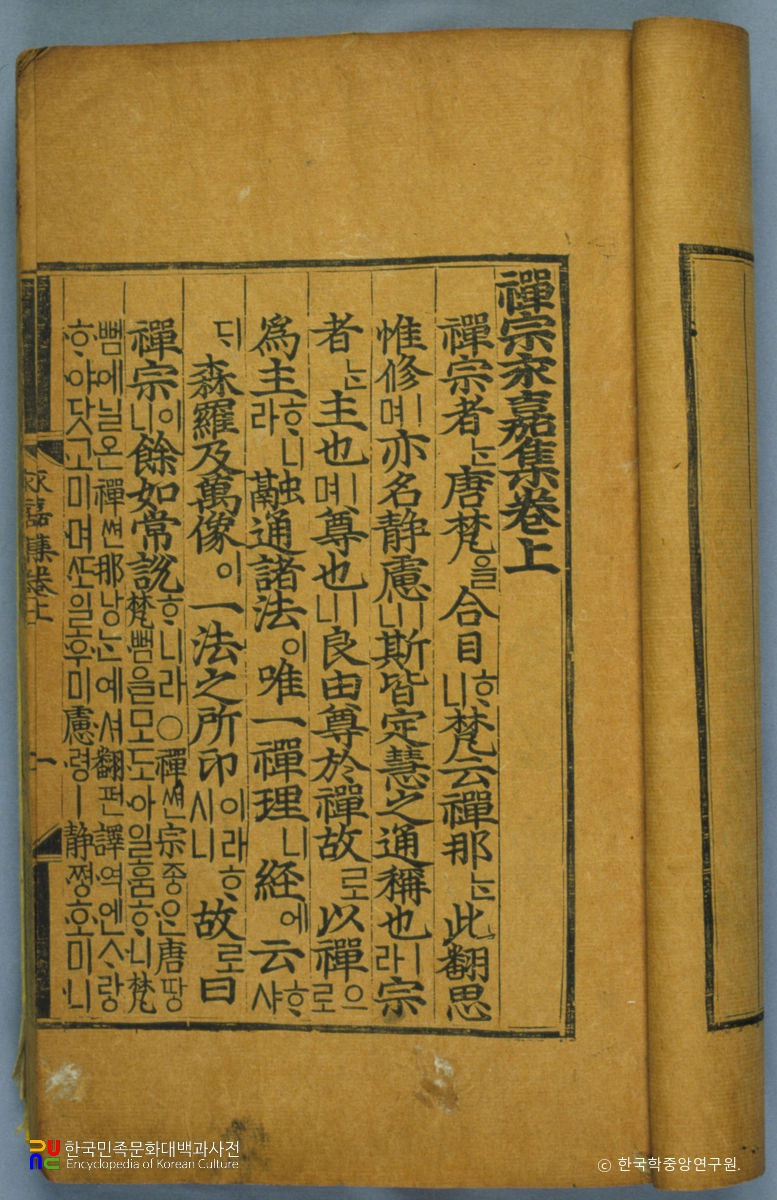 禪宗永嘉集卷上
禪宗者ᄂᆞᆫ唐梵을合目ᄒᆞ니梵云禪那ᄂᆞᆫ此翻思
惟修ㅣ며亦名静慮ㅣ니斯皆定慧之通稱也ㅣ라宗
者ᄂᆞᆫ主也ㅣ며尊也ㅣ니良由尊於禪故로以禪으로
為主ᄒᆞ니라融通諸法이唯一禪理니経에云ᄒᆞ샤
ᄃᆡ森羅及萬像이一法之所印이라ᄒᆞ시니故로曰
禪宗이니餘如常說ᄒᆞ니라○禪쎤宗조ᇰ은唐땅
梵뻠을모도아일훔ᄒᆞ니梵
뻠에닐온禪쎤那낭ᄂᆞᆫ예셔翻펀譯역엔ᄉᆞ랑
ᄒᆞ야닷고미며ᄯᅩ일후미慮령ㅣ静쪙호미니
永嘉集卷上 一
한국민족문화대백과사전
Encyclopedia of Korean Culture
ⓒ 한국학중앙연구원.